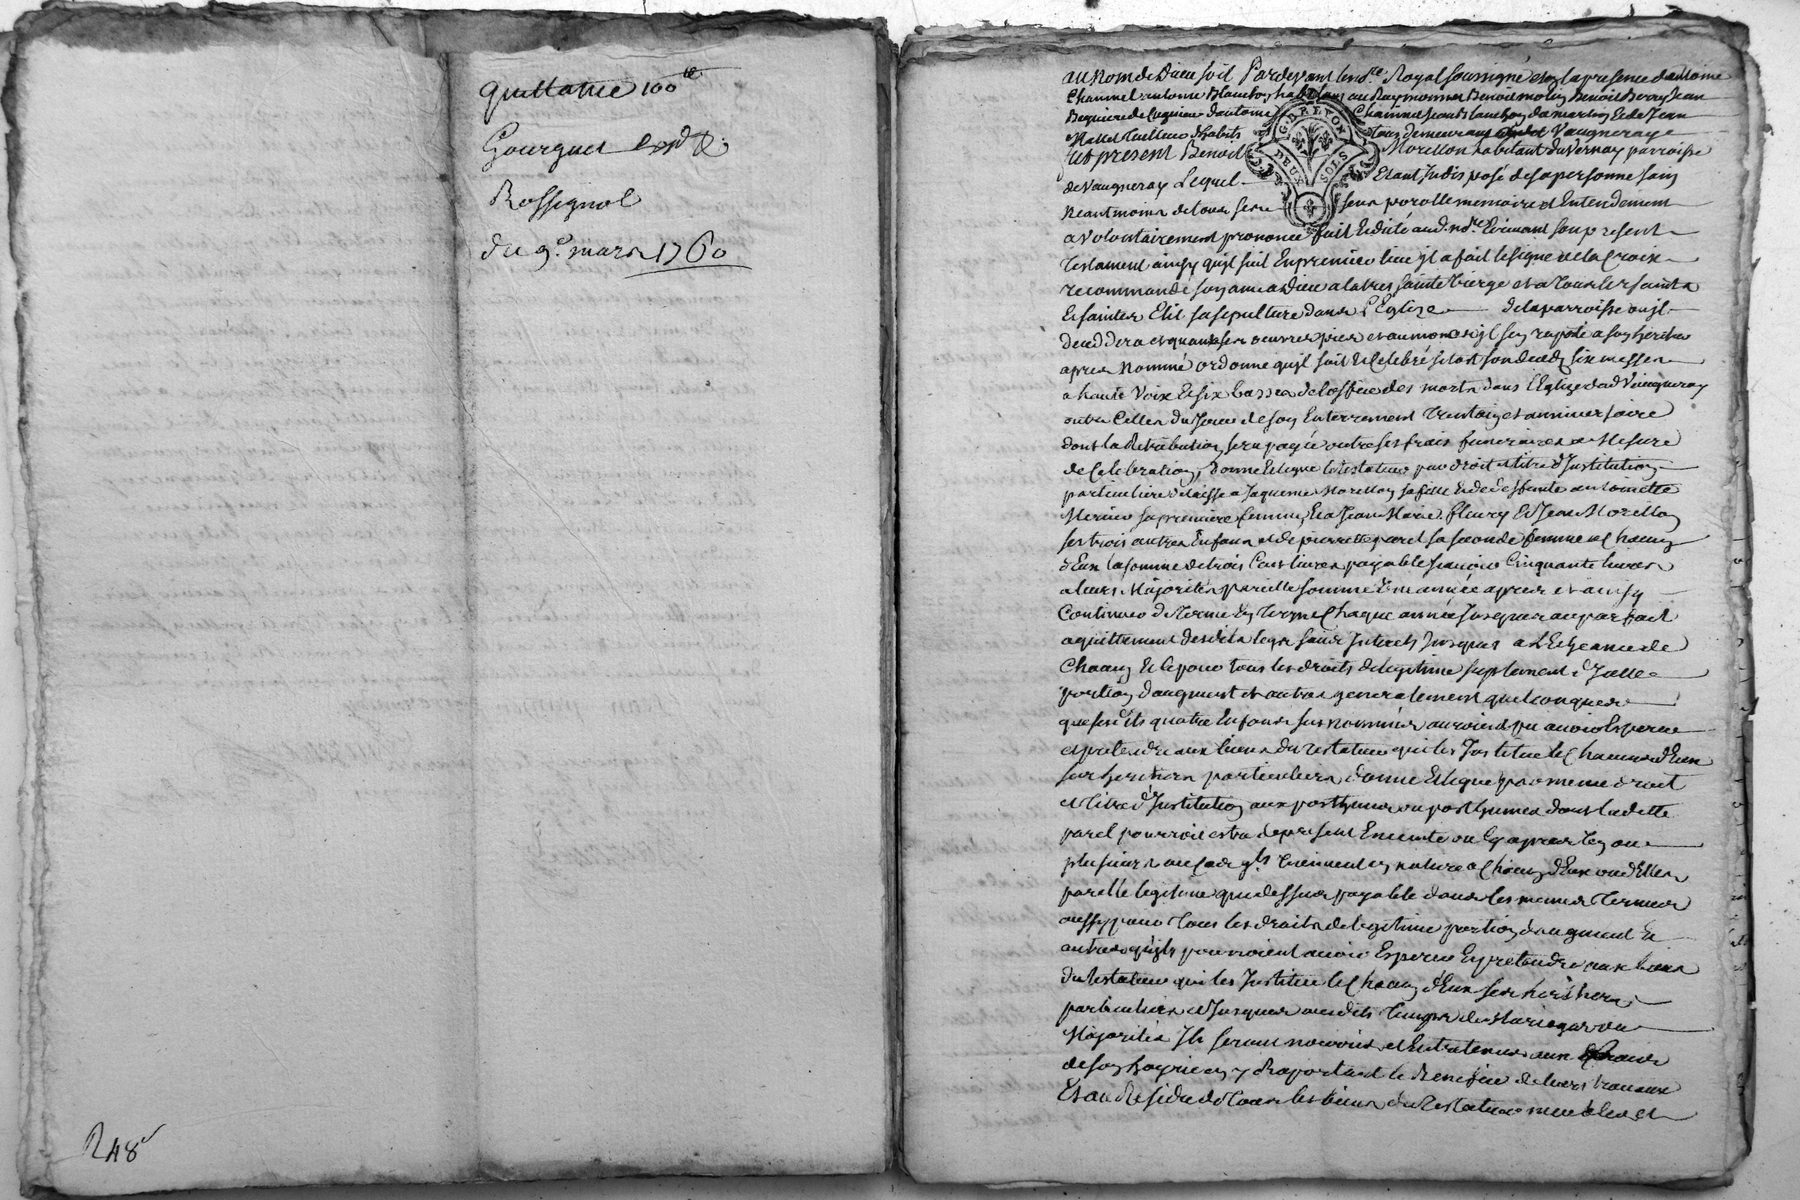 quittance 100ᵗᵗ
Gourguet
Rossignol
du 9ᵉ mars 1760
R 48ˢ
au nom de Dieu soit Pardevant le nore Royal soussigné et en la presence d'antoine
Chammel antoine Blanchon habitans au Benoit molin Benoit Jean
d'antoine Chammel Jean Blanchon de et de Jean
Tailleur d'habits tous demeurans Vaugneray
fut present Benoit Morellon habitant du Vernay parroisse
de Vaugneray Lequel Etant Indisposé de sa personne sain
neantmoins de tous sens parolle memoire et Entendement
a volontairement prononcé fait et dicté aud. nore Ecrivant son present
Testament ainsy qu'il suit En premier lieu il a fait le signe de la Croix
recommandé son ame a Dieu a la tres sainte vierge et a tous les saints
Et saintes Elit sa sepulture dans L'Eglise de la parroisse ou il
deceddera et quant a ses oeuvres pies et aumones il s'en raporte a son heritier
apres nommé ordonne qu'il soit Celebré sitost son deceds six messes
a haute voix Et six basses de l'office des morts dans l'Eglise dud Vaugneray
outre Celles du Jour de son Enterrement trentain et anniversaire
dont la Retribution sera payée outre les frais funeraires a Mesure
de Celebration, donne Et legue le testateur par droit et titre d'Institution
particuliere delaisse a Jaqueme Morellon sa fille Et de deffunte antoinette
Mercier sa premiere femme, Et a Jean Marie, fleury Et Jean Morellon
ses trois autres Enfans et de pierrette parel sa seconde femme a Chacun
d'Eux la somme de trois Cent livres payable scavoir Cinquante livres
a leurs Majorités pareille somme une année apres et ainsy
Continuer de Terme En Terme Chaque année Jusques au parfait
aquittement desdits legs sans Interets Jusques a L'Echeance de
Chacun Et le pour tous les droits de legitime suplement d'Icelle
portion d'augment et autres generalement quelconques
que sesdits quatre Enfans sus nommés auroient pu avoir Esperer
et pretendre aux biens du Testateur qui les Institue Et Chacun d'Eux
ses heritiers particuliers donne Et legue par meme droit
et titre d'Institution aux posthume ou posthumes dont ladette
parel pourroit estre de present Enceinte ou Cy apres un ou
plusieurs au Cas qu'ils viennent en nature a Chacun d'Eux ou d'Elles
pareille legitime que dessus payable dans les memes Termes
aussy pour tous les droits de legitime portion d'augment Et
autres qu'ils pourroient avoir Esperer Et pretendre aux biens
du testateur qui les Institue Et Chacun d'Eux ses heritiers
particuliers et Jusques ausdits Temps de Mariage ou
Majorités Ils seront nourris et Entretenus aux
de son hoyrie en y Raportant le Benefice de leurs travaux
Et au Residu de tous les biens du Testateur meubles et